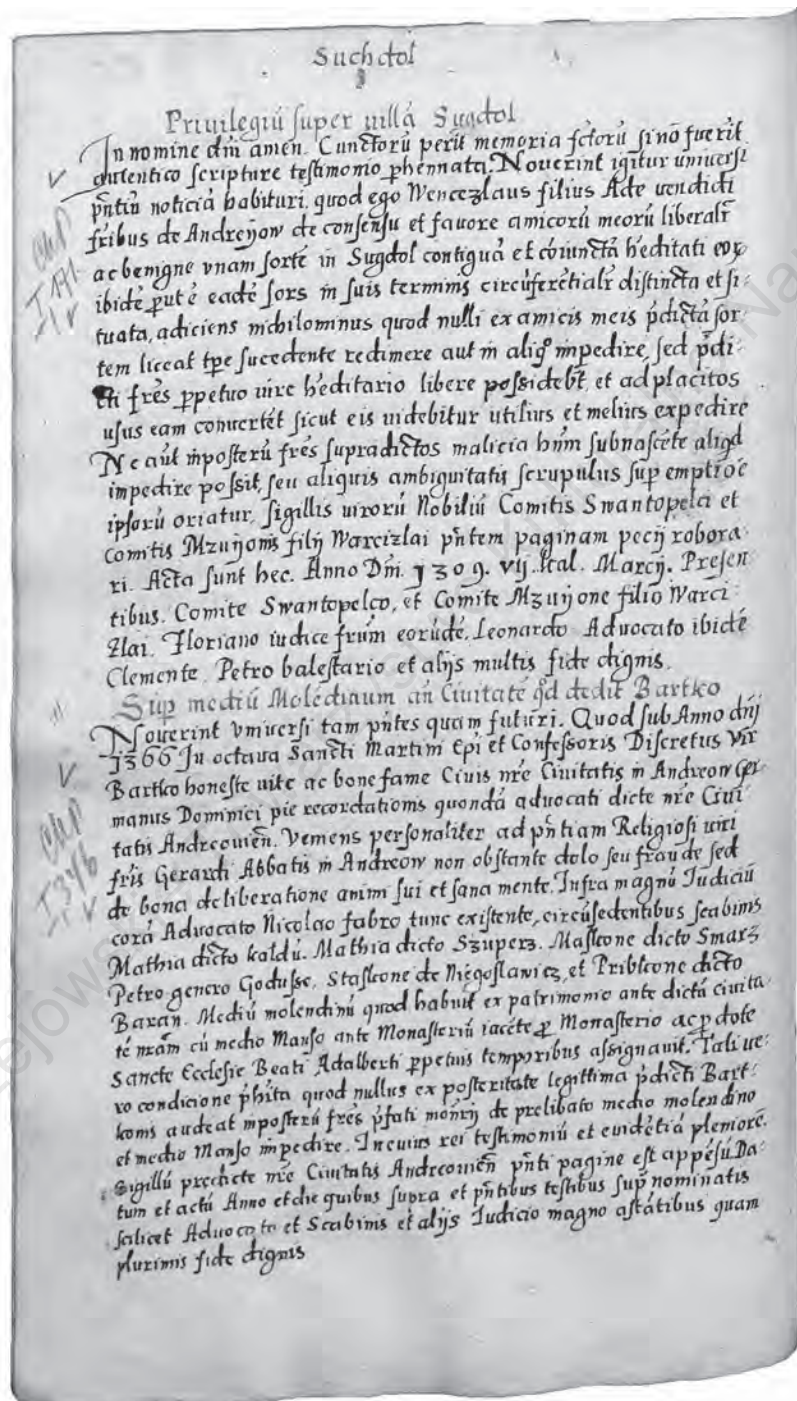 Suchdol
Priuilegiū super uillā Sugdol
In nomine dm̄ amen. Cunctorū perit memoria fctorū si nō fuerit
autentico scripture testimonio phennata. Nouerint igitur uniuersi
pn̄tiū noticiā habituri, quod ego Wencezlaus filius Ade uendidi
fribus de Andreyow de consensu et fauore amicorū meorū liberalr̄
ac benigne vnam sortē in Sugdol contiguā et cōiunctā h'editati eoȝ
ibidē put ē eadē sors in suis terminis circūferētialr̄ distincta et si:
tuata, adiciens nichilominus quod nulli ex amicis meis pdictā sor
tem liceat tpe sucedente redimere aut in aliq° impedire, sed pdi:
cti fres ppetuo iure h'editario libere possidebt, et ad placitos
usus eam conuertēt sicut eis uidebitur utilius et melius expedire
Ne aūt inposterū fres supradictos malicia hnm̄ subnascēte aliqd
impedire possit, seu aliquis ambiguitatis scrupulus sup emptiōe
ipsorū oriatur, sigillis uirorū Nobiliū Comitis Swantopelci et
Comitis Mzuyonis filij Warcizlai pn̄tem paginam pecij robora
ri. Acta sunt hec. Anno Dm̄. 1309. vij. Kal. Marcij. Presen
tibus. Comite Swantopelco, et Comite Mzuyone filio Warci
zlai. Floriano iudice frūm eorūdē. Leonardo Aduocato ibidē
Clemente. Petro balestario et alijs multis fide dignis.
Sup mediū Molēdinum an̄ Ciuitatē qd dedit Bartko
Nouerint vniuersi tam pn̄tes quam futuri. Quod sub Anno dnj
1366 In octaua Sancti Martini Epi et Confessoris Discretus vir
Bartko honeste uite ac bone fame Ciuis nr̄e Ciuitatis in Andreow Ger
manus Dominici pie recordationis quondā aduocati dicte nr̄e Ciui
tatis Andreouien̄. Veniens personaliter ad pn̄tiam Religiosi uiri
fris Gerardi Abbatis in Andreow non obstante dolo seu fraude sed
de bona deliberatione animi sui et sana mente. Infra magnū Iudiciū
corā Aduocato Nicolao fabro tunc existente, circūsedentibus scabinis
Mathia dicto kaldū. Mathia dicto Szupersz. Maskone dicto Smarz
Petro genero Godusse. Staskone de Niegoslawicz, et Pribkone dicto
Baran. Mediū molendinū quod habuit ex patrimonio ante dictā ciuita
tē nrām cū medio Manso ante Monasteriū iacēte p Monasterio ac p dote
Sancte Ecclesie Beati Adalberti ppetuis temporibus assignauit. Tali ue:
ro condicione phita quod nullus ex posteritate legittima pdicti Bart:
konis audeat inposterū fres pfati mon̄rij de prelibato medio molendino
et medio Manso impedire. In cuius rei testimoniū et euidētiā pleniorē.
Sigillū predicte nr̄e Ciuitatis Andreouien̄ pn̄ti pagine est appēsū. Da:
tum et actū Anno et die quibus supra et pn̄tibus testibus sup nominatis
scilicet Aduocato et Scabinis et alijs Iudicio magno astātibus quam
plurimis fide dignis